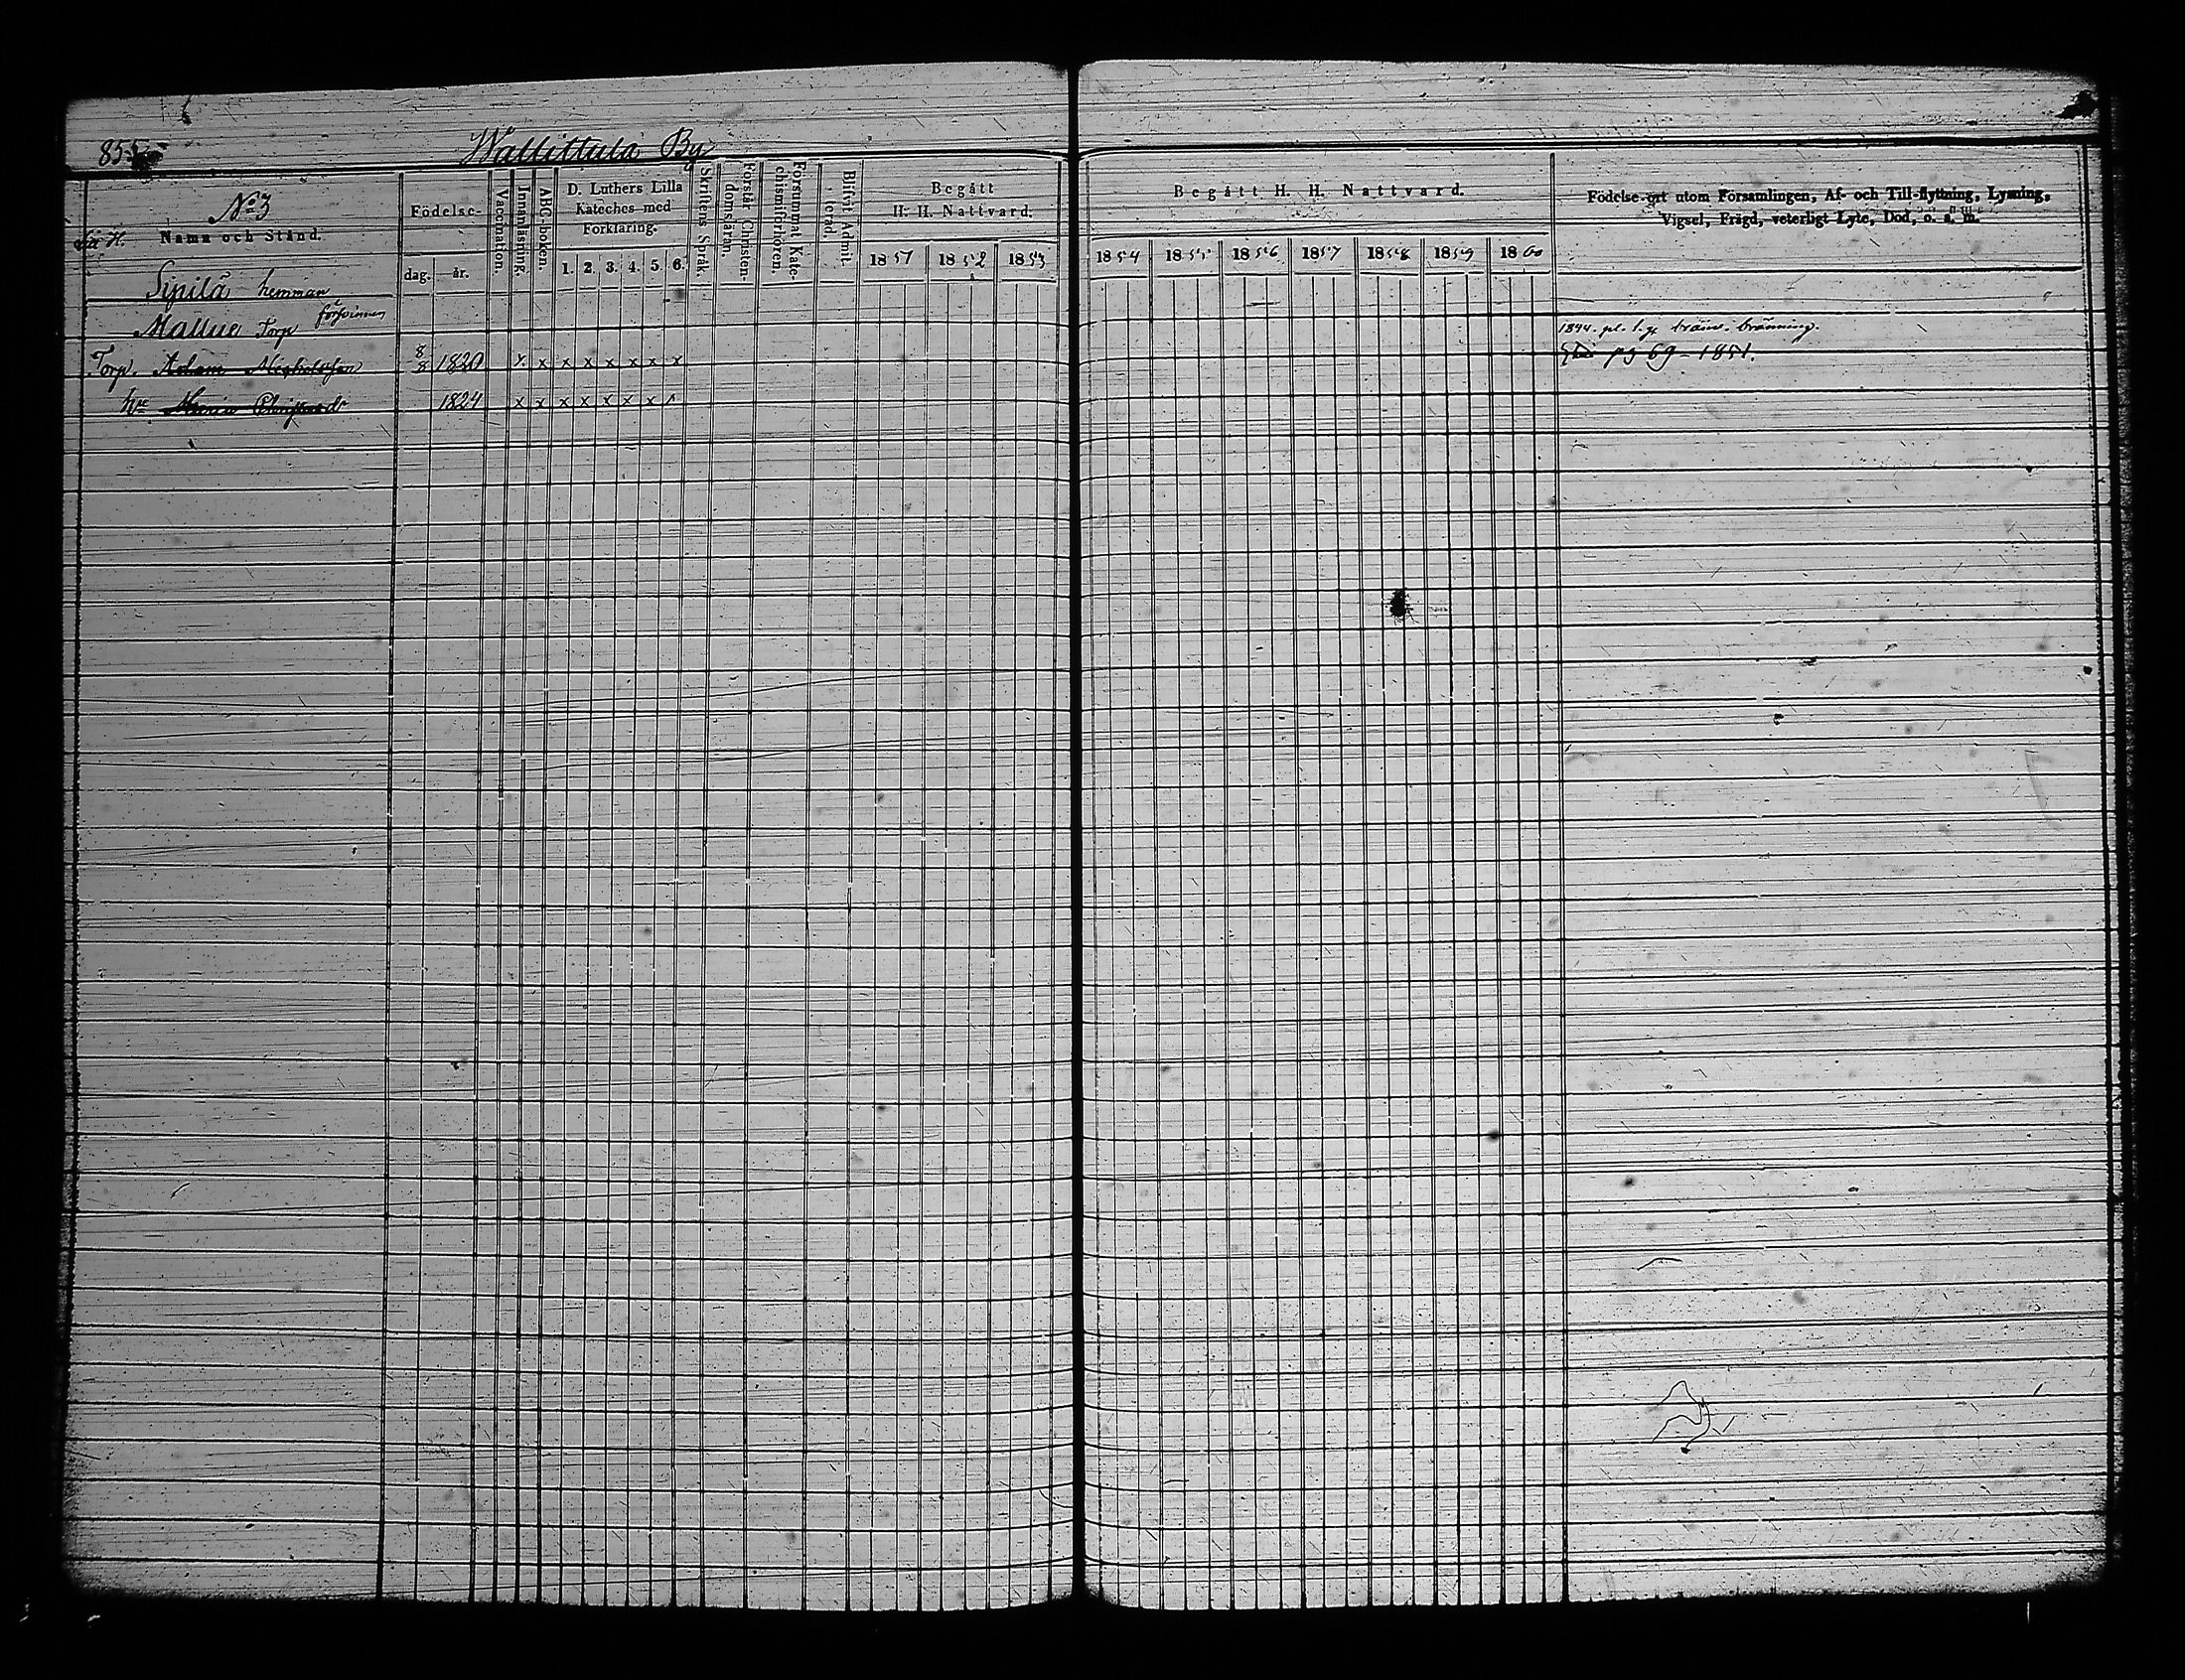 855
Wallittula By
No 3
Namn och Stånd.
Födelse-
dag. år.
Vaccination.
Innanläsning.
ABC-boken.
D. Luthers Lilla Kateches med Förklaring.
1. 2. 3. 4. 5. 6.
Skriftens Språk.
Förstår Christendomsläran.
Försummat Katechismiförhören.
Blifvit Admitterad.
Begått H. H. Nattvard.
1851 1852 1853
Begått H. H. Nattvard.
1854 1855 1856 1857 1858 1859 1860
Födelse-ort utom Församlingen, Af- och Till-flyttning, Lysning,
Vigsel, Frägd, veterligt Lyte, Död, o. s. m.
Sipilä hemman
Mallue Torp
Torp. Adam Michelsson 8/8 1820 x x x x x x x x
pg 69 - 1851.
hu Maria 1824 x x x x x x x x